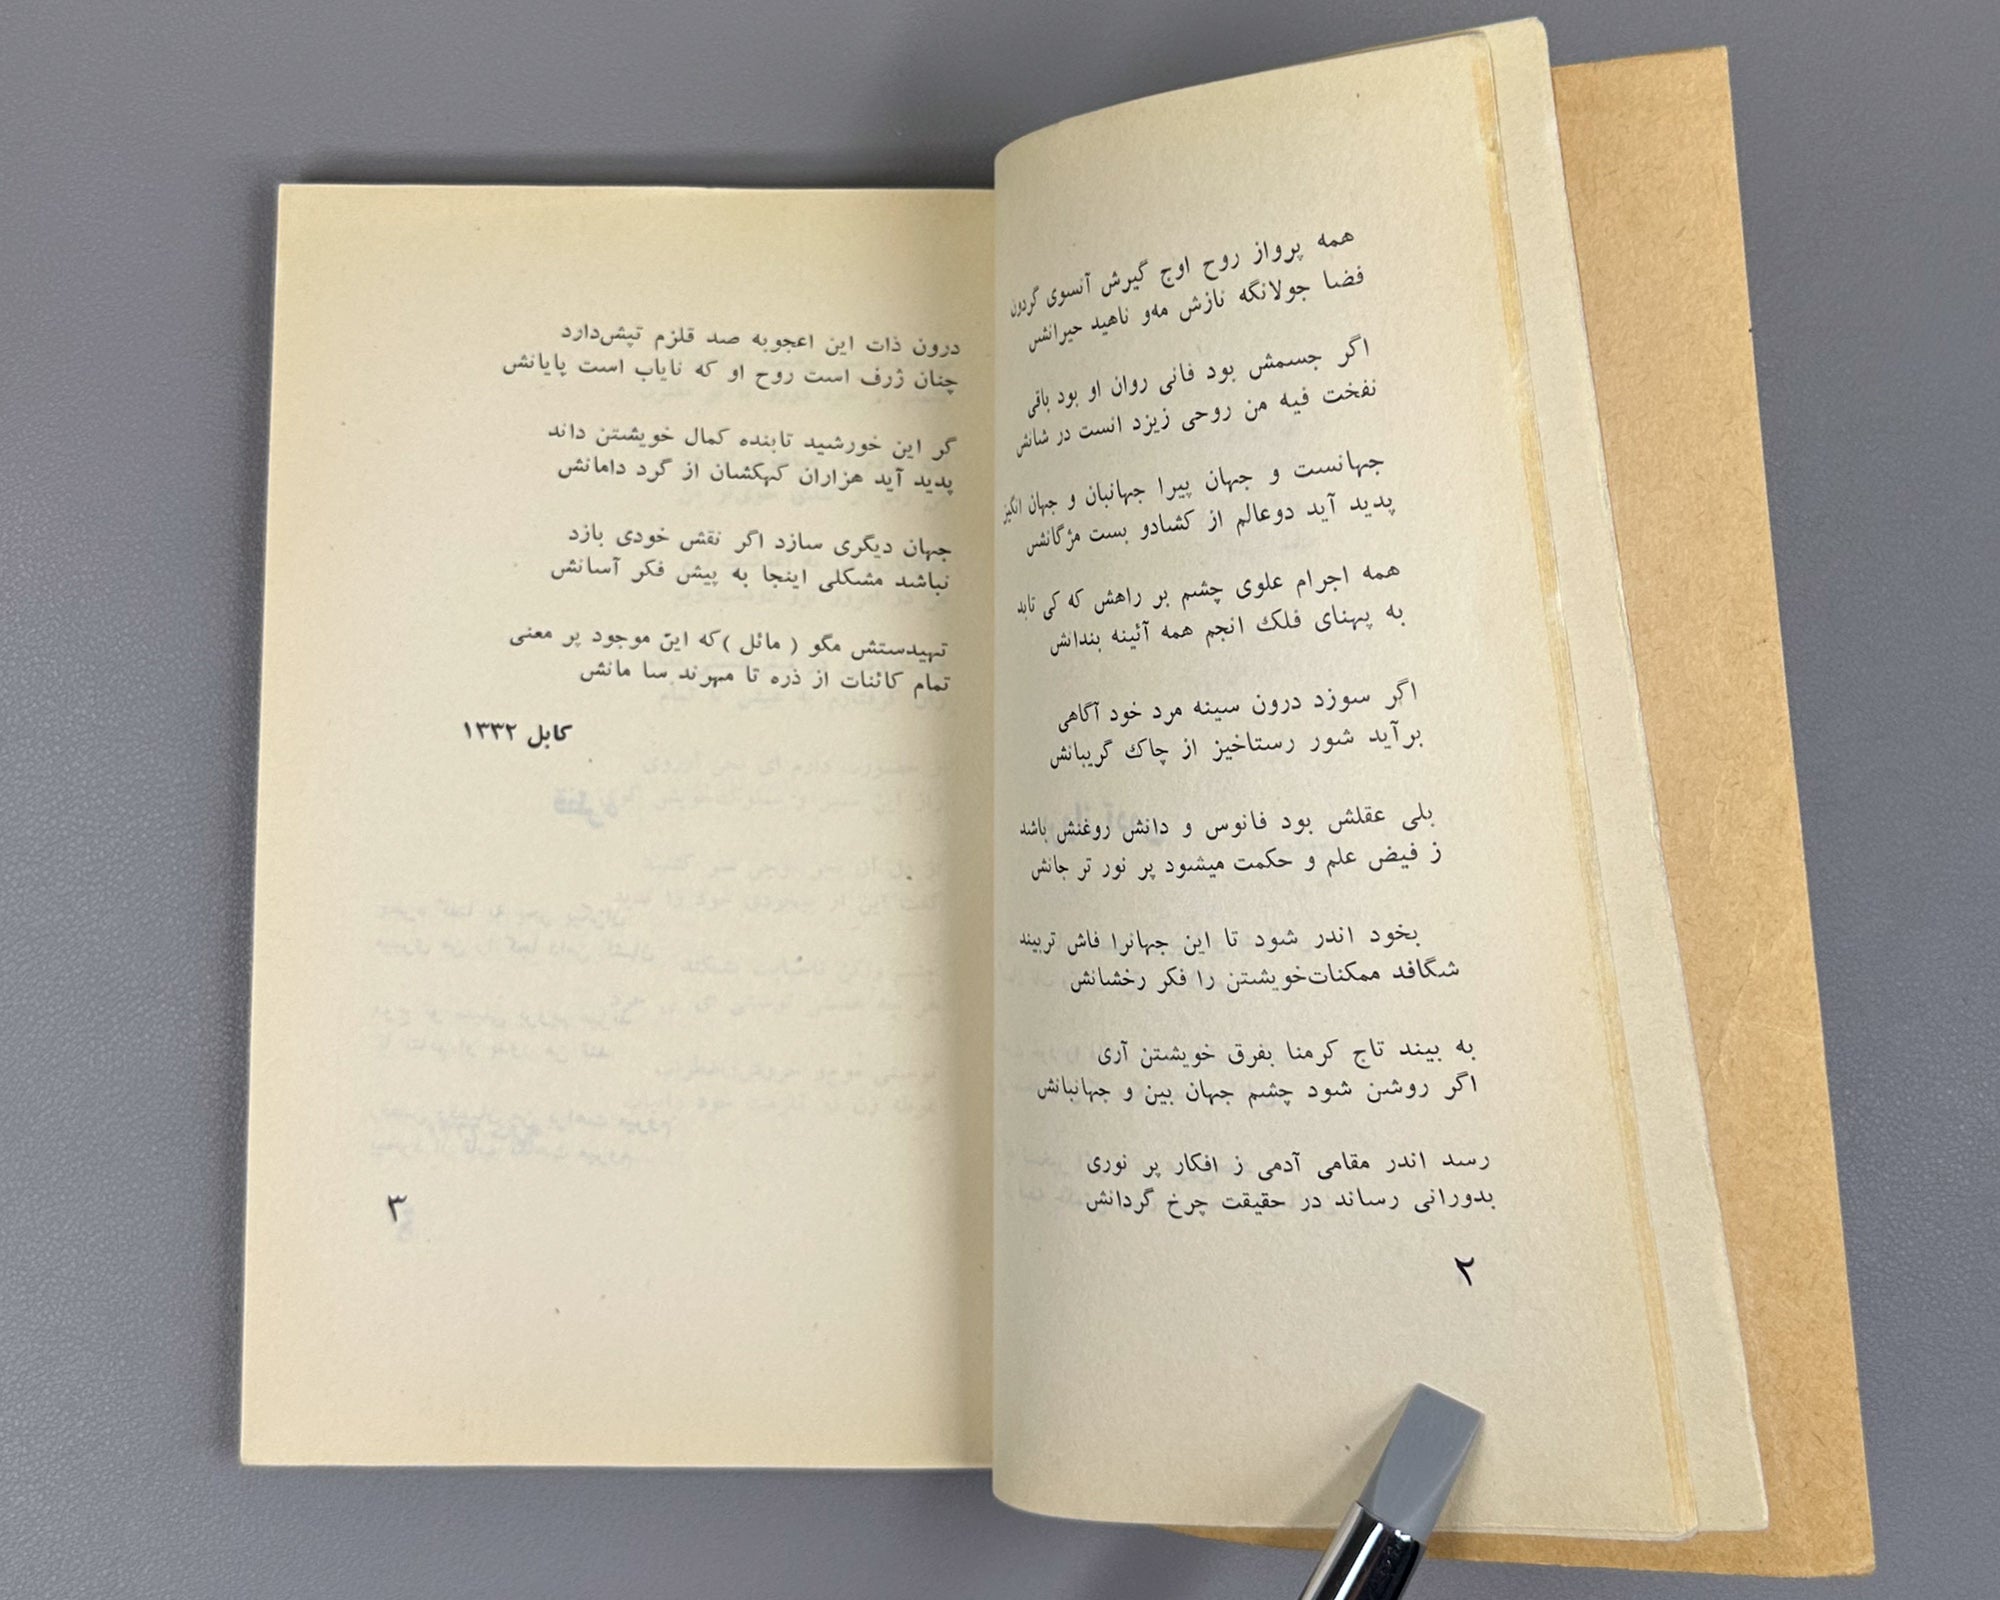 همه پرواز روح اوج گیرش آنسوی گردون
فضا جولانگه نازش مه‌و ناهید حیرانش
اگر جسمش بود فانی روان او بود باقی
نفخت فیه من روحی زیزد انست در شانش
جهانست و جهان پیرا جهانبان و جهان انگیز
پدید آید دوعالم از کشادو بست مژگانش
همه اجرام علوی چشم بر راهش که کی تابد
به پهنای فلک انجم همه آئینه بندانش
اگر سوزد درون سینه مرد خود آگاهی
برآید شور رستاخیز از چاک گریبانش
بلی عقلش بود فانوس و دانش روغنش باشد
ز فیض علم و حکمت میشود پر نور تر جانش
بخود اندر شود تا این جهانرا فاش تربیند
شگافد ممکنات‌خویشتن را فکر رخشانش
به بیند تاج کرمنا بفرق خویشتن آری
اگر روشن شود چشم جهان بین و جهانبانش
رسد اندر مقامی آدمی ز افکار پر نوری
بدورانی رساند در حقیقت چرخ گردانش
۲
درون ذات این اعجوبه صد قلزم تپش‌دارد
چنان ژرف است روح او که نایاب است پایانش
گر این خورشید تابنده کمال خویشتن داند
پدید آید هزاران کهکشان از گرد دامانش
جهان دیگری سازد اگر نقش خودی بازد
نباشد مشکلی اینجا به پیش فکر آسانش
تهیدستش مگو ( مائل )که این موجود پر معنی
تمام کائنات از ذره تا مهرند سا مانش
کابل ۱۳۳۲
۳